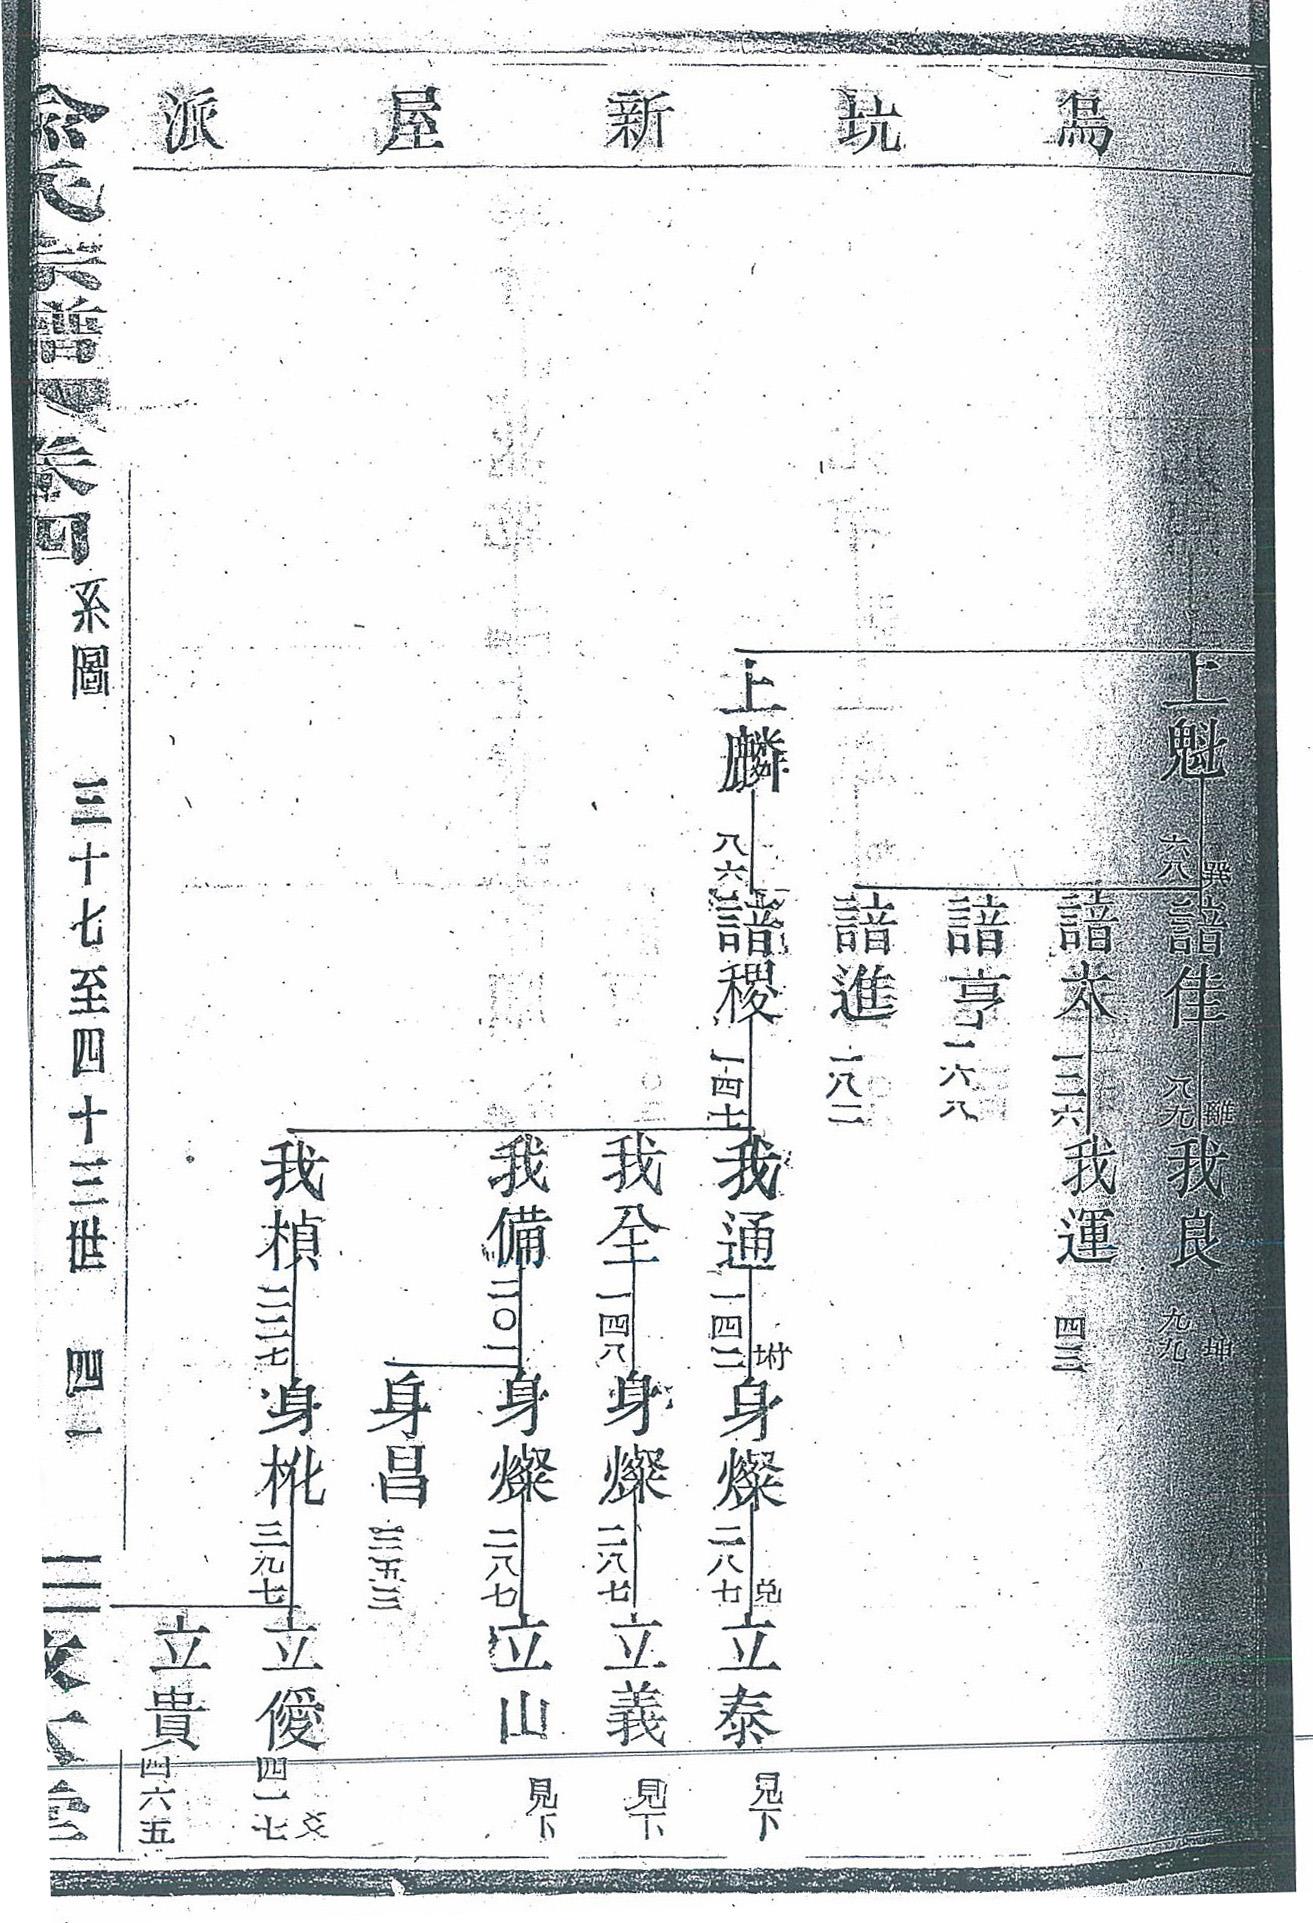 烏坑新屋派
上魁 六八 巽
諳佳 八九 離
我良 九九 坤
諳太 一二六
我運 四三
諳亨 一六八
諳進 一八二
上麟 八六
諳稷 一四七
我通 一四二 坿
身燦 二八七 兌
立泰 見下
我全 一四八
身燦 二八七
立義 見下
我備 二〇一
身燦 二八七
立山 見下
身昌 三五三
我楨 二二七
身枇 三九七
立優 四一七 爻
立貴 四六五
俞氏宗譜 卷四 系圖 三十七至四十三世 四一